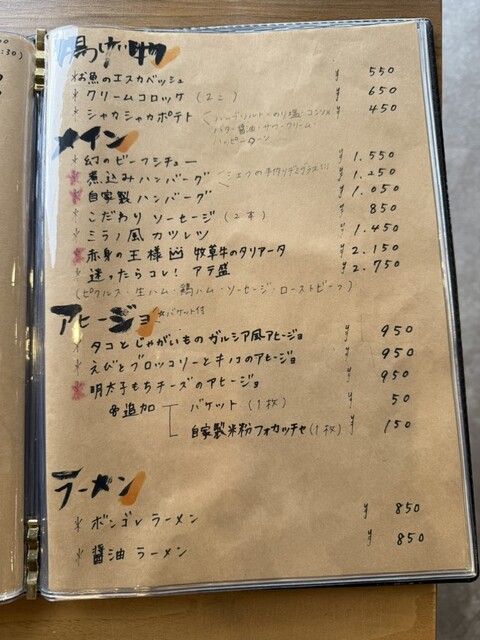 揚げ物
*お魚のエスカベッシュ ¥ 550
*クリームコロッケ (2コ) ¥ 650
*シャカシャカポテト ¥ 450
ハーブソルト・のり塩・コンソメ
バター醤油・サワークリーム
ハッピーターン
メイン
*幻のビーフシチュー ¥ 1.550
*煮込みハンバーグ ¥ 1.250
*自家製ハンバーグ ¥ 1.050
シェフの手作りデミグラス
*こだわり ソーセージ (2本) ¥ 850
*ミラノ風カツレツ ¥ 1.450
*赤身の王様 牧草牛のタリアータ ¥ 2.150
*迷ったらコレ! アテ盛 ¥ 2.750
(ピクルス・生ハム・鶏ハム・ソーセージ・ローストビーフ)
アヒージョ *バケット付
*タコとじゃがいものガルシア風アヒージョ ¥ 950
*えびとブロッコリーとキノコのアヒージョ ¥ 950
*明太子もちチーズのアヒージョ ¥ 950
追加 バケット (1枚) ¥ 50
自家製米粉フォカッチャ (1枚) ¥ 150
ラーメン
*ボンゴレラーメン ¥ 850
*醤油ラーメン ¥ 850